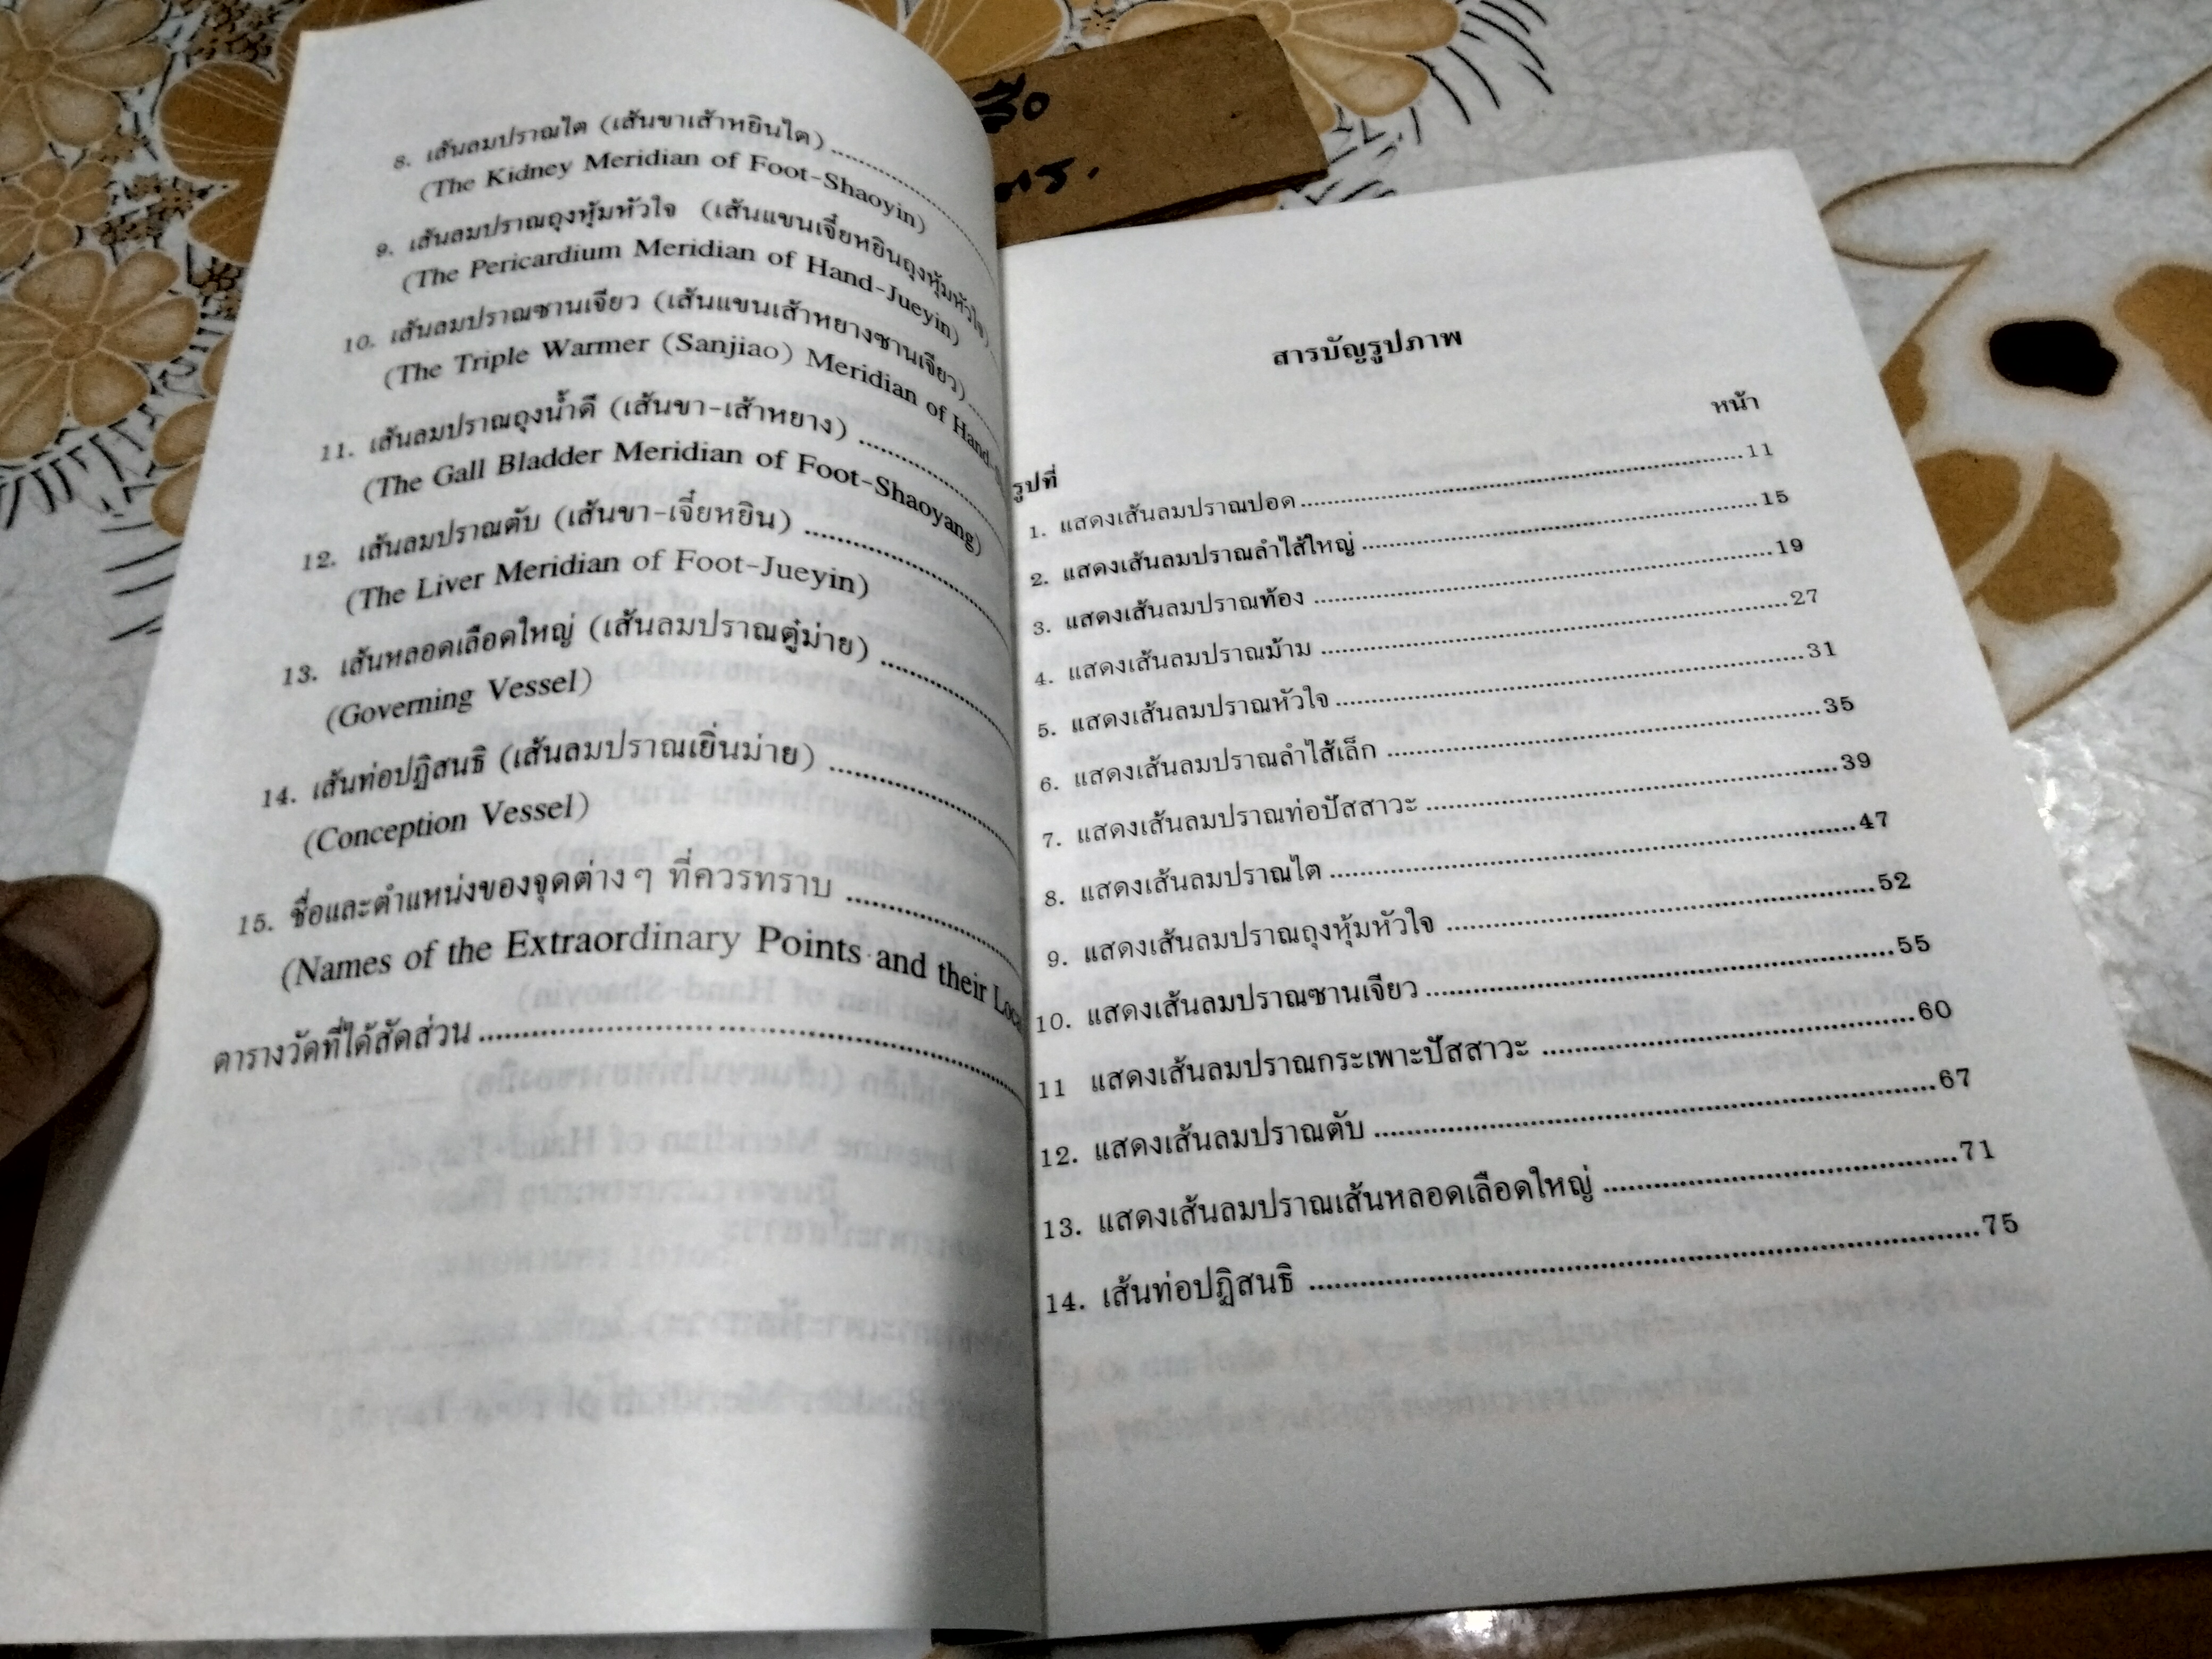 8. เส้นลมปราณไต (เส้นขาเส้าหยินไต)
(The Kidney Meridian of Foot-Shaoyin)
9. เส้นลมปราณถุงหุ้มหัวใจ (เส้นแขนเจี๋ยหยินถุงหุ้มหัวใจ)
(The Pericardium Meridian of Hand-Jueyin)
10. เส้นลมปราณซานเจียว (เส้นแขนเส้าหยางซานเจียว)
(The Triple Warmer (Sanjiao) Meridian of Hand-
11. เส้นลมปราณถุงน้ำดี (เส้นขา-เส้าหยาง)
(The Gall Bladder Meridian of Foot-Shaoyang)
12. เส้นลมปราณตับ (เส้นขา-เจี๋ยหยิน)
(The Liver Meridian of Foot-Jueyin)
13. เส้นหลอดเลือดใหญ่ (เส้นลมปราณตู๋ม่าย)
(Governing Vessel)
14. เส้นท่อปฏิสนธิ (เส้นลมปราณเยิ่นม่าย)
(Conception Vessel)
15. ชื่อและตำแหน่งของจุดต่างๆ ที่ควรทราบ
(Names of the Extraordinary Points and their Loca
ตารางวัดที่ได้สัดส่วน
สารบัญรูปภาพ
รูปที่ หน้า
1. แสดงเส้นลมปราณปอด 11
2. แสดงเส้นลมปราณลำไส้ใหญ่ 15
3. แสดงเส้นลมปราณท้อง 19
4. แสดงเส้นลมปราณม้าม 27
5. แสดงเส้นลมปราณหัวใจ 31
6. แสดงเส้นลมปราณลำไส้เล็ก 35
7. แสดงเส้นลมปราณท่อปัสสาวะ 39
8. แสดงเส้นลมปราณไต 47
9. แสดงเส้นลมปราณถุงหุ้มหัวใจ 52
10. แสดงเส้นลมปราณซานเจียว 55
11 แสดงเส้นลมปราณกระเพาะปัสสาวะ 60
12. แสดงเส้นลมปราณตับ 67
13. แสดงเส้นลมปราณเส้นหลอดเลือดใหญ่ 71
14. เส้นท่อปฏิสนธิ 75